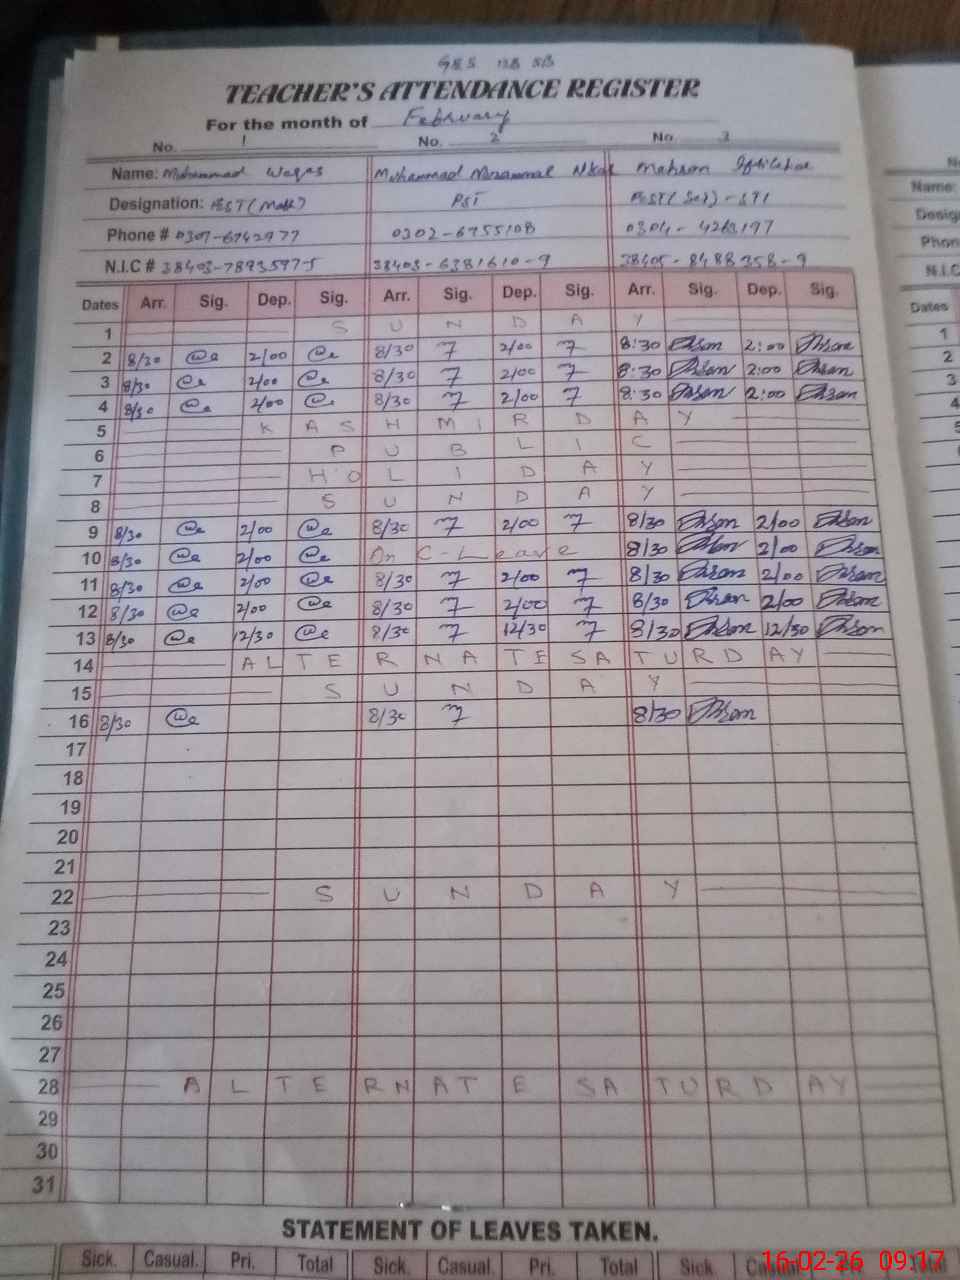 TEACHER'S ATTENDANCE REGISTER
For the month of February
No. 1 No. 2 No. 3
Name: Muhammad Waqas Muhammad Muzammal
Designation: PST
Phone # 0307-6742977 0302-6755108 0304-4263197
N.I.C # 38403-7893597-5 38403-6381610-9 38405-8488358-9
Dates Arr. Sig. Dep. Sig. Arr. Sig. Dep. Sig. Arr. Sig. Dep. Sig.
1 SUNDAY
2 8/30 2/00 8/30 2/00 8:30 2:00
3 8/30 2/00 8/30 2/00 8:30 2:00
4 8/30 2/00 8/30 2/00 8:30 2:00
5 KASHMIR DAY
6 PUBLIC
7 HOLIDAY
8 SUNDAY
9 8/30 2/00 8/30 2/00 8/30 2/00
10 8/30 2/00 On C-Leave 8/30 2/00
11 8/30 2/00 8/30 2/00 8/30 2/00
12 8/30 2/00 8/30 2/00 8/30 2/00
13 8/30 12/30 8/30 12/30 8/30 12/30
14 ALTERNATE SATURDAY
15 SUNDAY
16 8/30 8/30 8/30
17
18
19
20
21
22 SUNDAY
23
24
25
26
27
28 ALTERNATE SATURDAY
29
30
31
STATEMENT OF LEAVES TAKEN.
Sick. Casual. Pri. Total Sick. Casual. Pri. Total Sick.
16-02-26 09:17
Name:
Phon
N.I.C
Dates
1
2
3
4